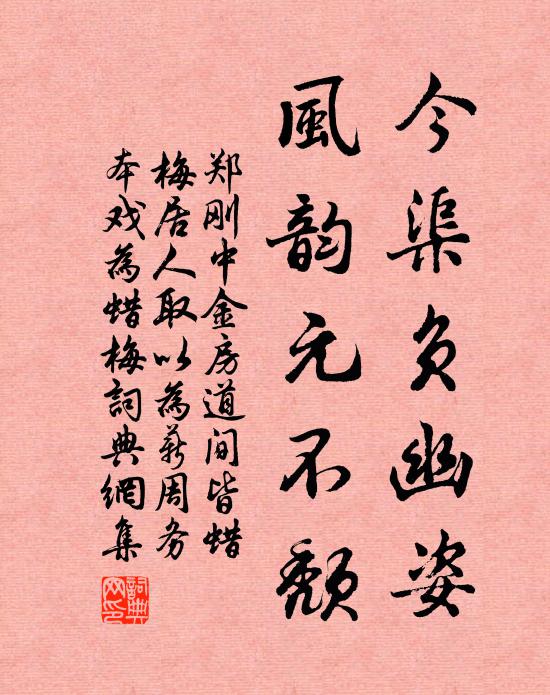 今渠负幽姿
風韵元不颓
郑刚中金房道间皆蜡
梅居人取以為薪周务
本戏為蜡梅詞典網集
詞典网印